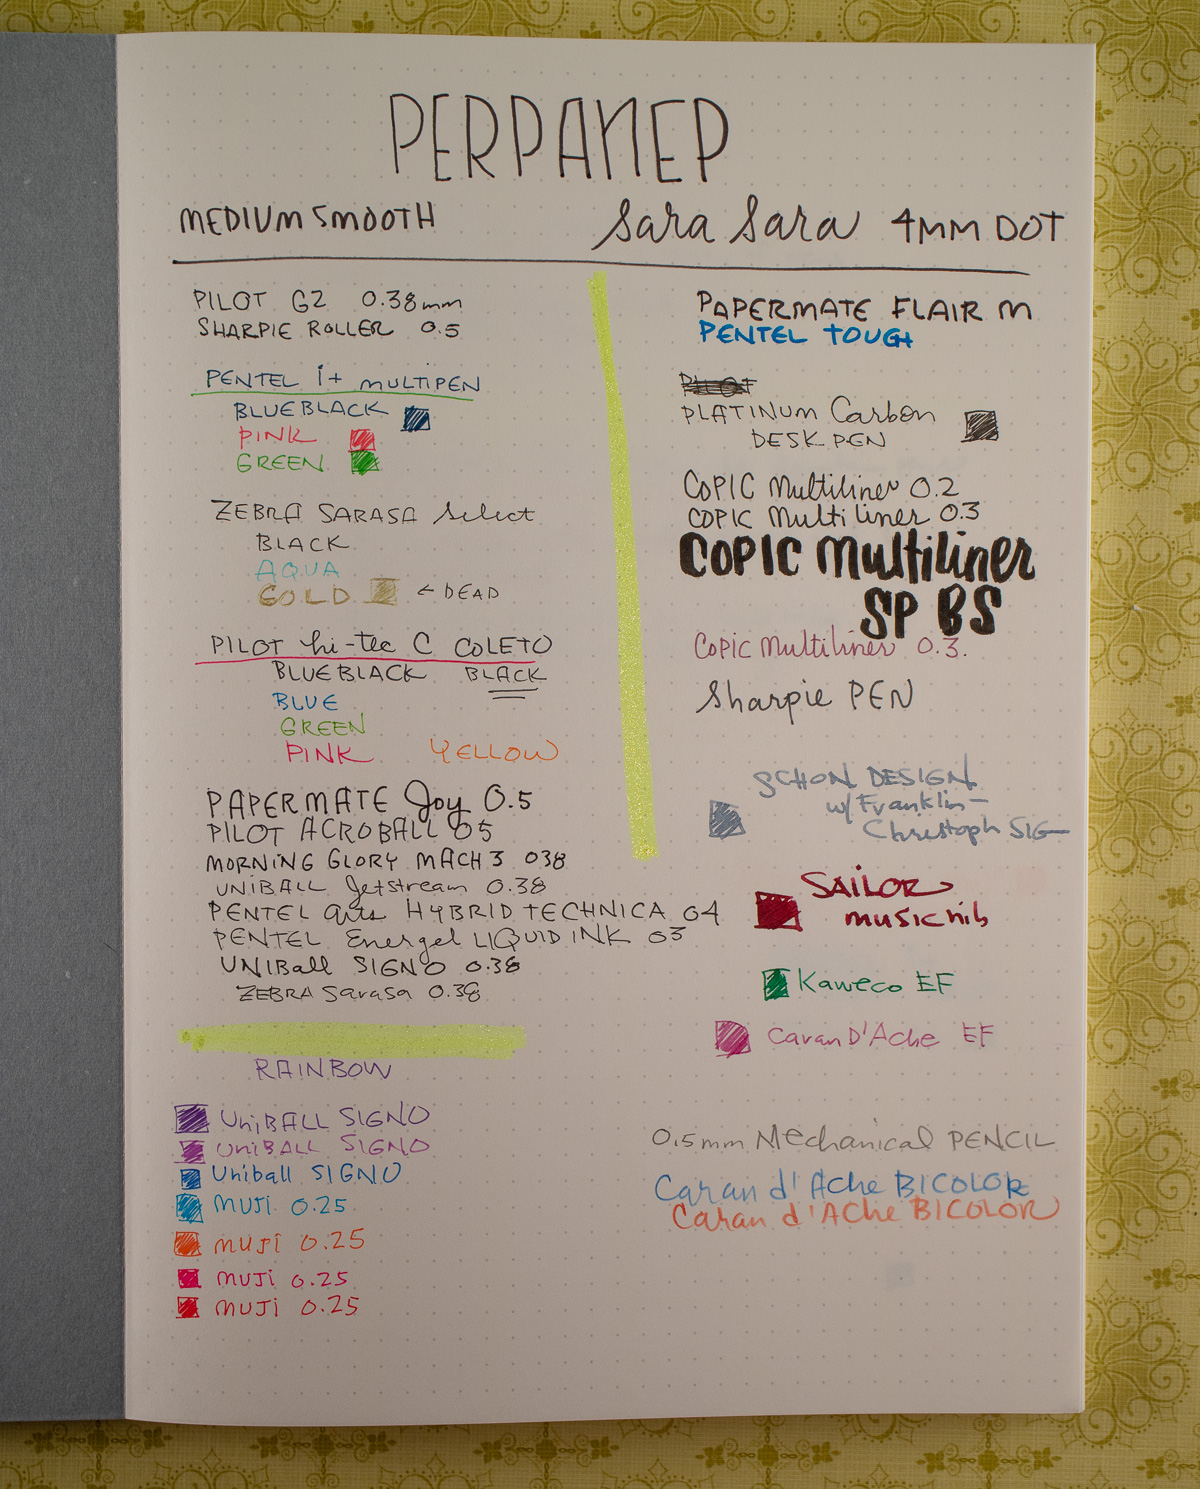 PERPANEP
MEDIUM SMOOTH Sara Sara 4MM DOT
PILOT G2 0.38mm
SHARPIE ROLLER 0.5
PENTEL i+ MULTIPEN
BLUEBLACK
PINK
GREEN
ZEBRA SARASA Select
BLACK
AQUA
GOLD ← DEAD
PILOT hi-tec C COLETO
BLUEBLACK BLACK
BLUE
GREEN
PINK YELLOW
PAPERMATE Joy 0.5
PILOT ACROBALL 05
MORNING GLORY MACH 3 038
UNIBALL Jetstream 0.38
PENTEL arts HYBRID TECHNICA 04
PENTEL Energel LIQUID INK 03
UNIBall SIGNO 0.38
ZEBRA Sarasa 0.38
RAINBOW
UniBALL SIGNO
UniBALL SIGNO
Uniball SIGNO
MUJI 0.25
MUJI 0.25
MUJI 0.25
MUJI 0.25
PAPERMATE FLAIR M
PENTEL TOUGH
PILOT
PLATINUM Carbon
DESK PEN
COPIC Multiliner 0.2
COPIC Multiliner 0.3
COPIC Multiliner
SP BS
COPIC Multiliner 0.3.
Sharpie PEN
SCHON DESIGN
w/ Franklin-
Christoph SIG
SAILOR
music nib
Kaweco EF
Caran D'Ache EF
0.5mm Mechanical PENCIL
Caran d'Ache BICOLOR
Caran d'Ache BICOLOR